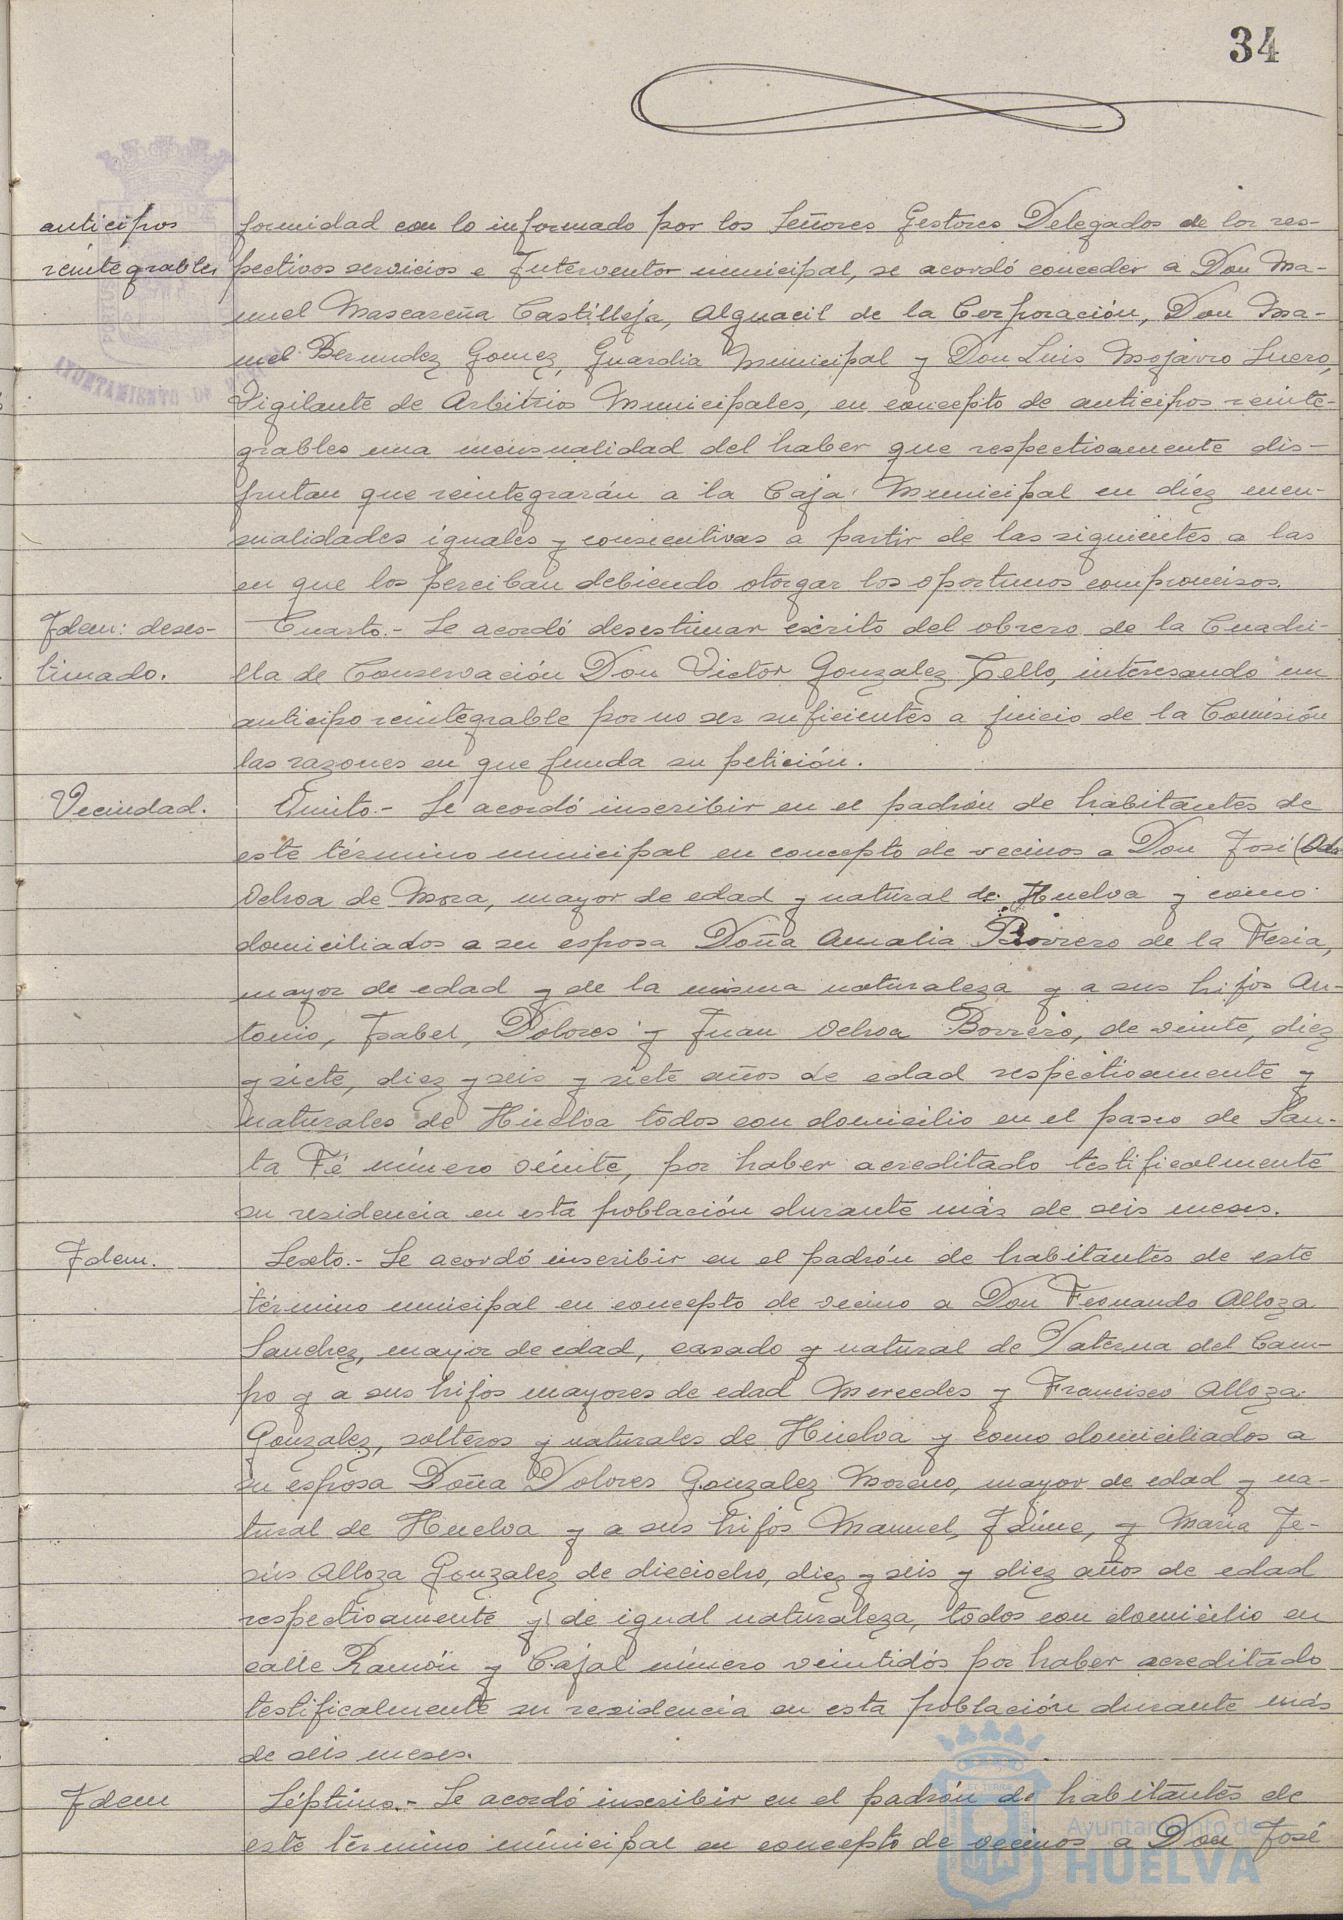 34
anticipos
reintegrables
formidad con lo informado por los Señores Gestores Delegados de los res-
pectivos servicios e Interventor municipal, se acordó conceder a Don Ma-
nuel Mascareña Castilleja, Alguacil de la Corporación, Don Ma-
nuel Bermudez Gomez, Guardia Municipal y Don Luis Mojarro Suero,
Vigilante de Arbitrios Municipales, en concepto de anticipos reinte-
grables una mensualidad del haber que respectivamente dis-
frutan que reintegrarán a la Caja Municipal en diez men-
sualidades iguales y consecutivas a partir de las siguientes a las
en que los perciban debiendo otorgar los oportunos compromisos.
Idem: deses-
timado.
Cuarto.- Se acordó desestimar escrito del obrero de la Cuadri-
lla de Conservación Don Victor Gonzalez Tello, interesando un
anticipo reintegrable por no ser suficientes a juicio de la Comisión
las razones en que funda su petición.
Vecindad.
Quinto.- Se acordó inscribir en el padrón de habitantes de
este término municipal en concepto de vecinos a Don José
Ochoa de Mora, mayor de edad y natural de Huelva y como
domiciliados a su esposa Doña Amalia Borrero de la Feria,
mayor de edad y de la misma naturaleza y a sus hijos An-
tonio, Isabel, Dolores y Juan Ochoa Borrero, de veinte, diez
y siete, diez y seis y siete años de edad respectivamente y
naturales de Huelva todos con domicilio en el paseo de San-
ta Fé número veinte, por haber acreditado testificalmente
su residencia en esta población durante más de seis meses.
Idem.
Sexto.- Se acordó inscribir en el padrón de habitantes de este
término municipal en concepto de vecino a Don Fernando Alloza
Sanchez, mayor de edad, casado y natural de Paterna del Cam-
po y a sus hijos mayores de edad Mercedes y Francisco Alloza
Gonzalez, solteros y naturales de Huelva y como domiciliados a
su esposa Doña Dolores Gonzalez Moreno, mayor de edad y na-
tural de Huelva y a sus hijos Manuel, Jaime, y María Je-
sús Alloza Gonzalez de dieciocho, diez y seis y diez años de edad
respectivamente y de igual naturaleza, todos con domicilio en
calle Ramón y Cajal número veintidós por haber acreditado
testificalmente su residencia en esta población durante más
de seis meses.
Idem
Séptimo.- Se acordó inscribir en el padrón de habitantes de
este término municipal en concepto de vecinos a Don José
Ayuntamiento de
HUELVA